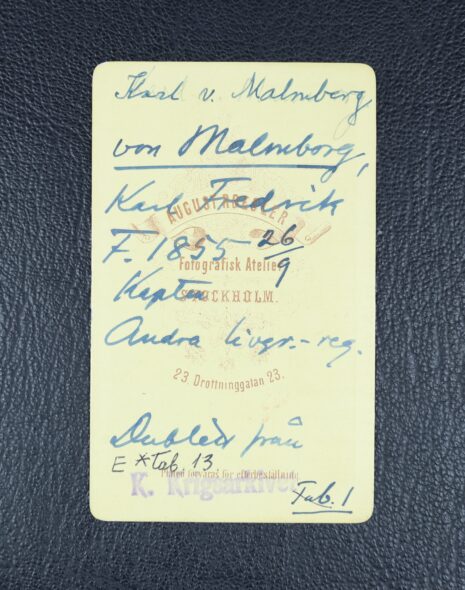 Karl v. Malmberg
von Malmborg,
Karl Fredrik
AUGUST ROESLER
F. 1855 26/9
Fotografisk Atelier
Kapten
STOCKHOLM.
Andra livgr.-reg.
23. Drottninggatan 23.
Dublett från
E *Tab. 13
Plåten förvaras för efterbeställning
K. Krigsarkivet
Tab. 1